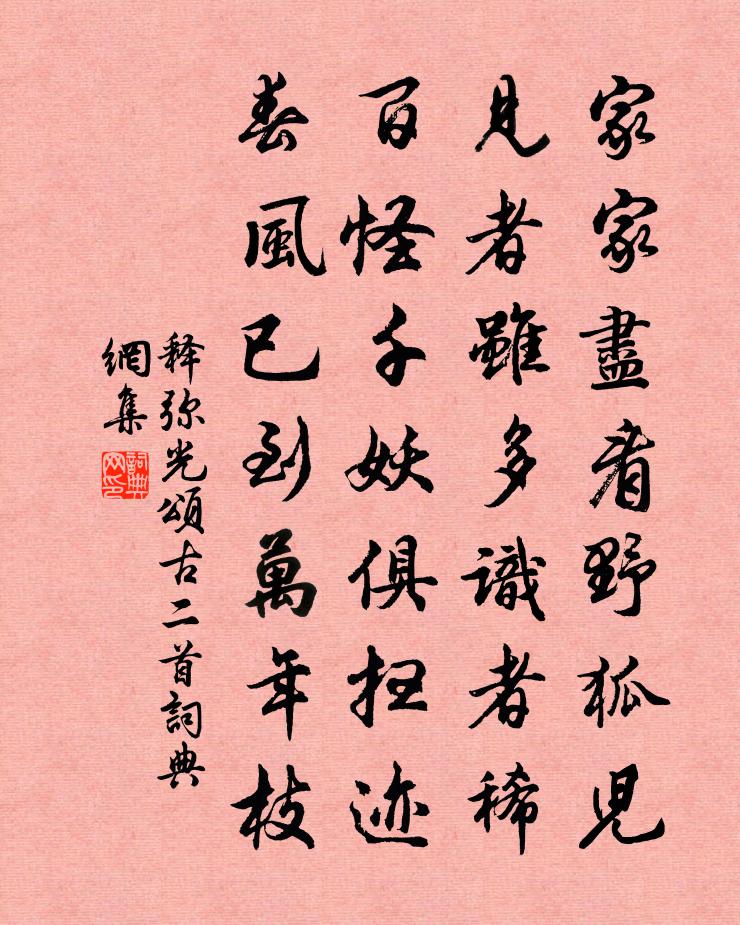 家家盡看野狐児
見者雖多識者稀
百怪千妖俱抂迹
春風已到萬年枝
释弥光頌古二首詞典
網集
詞典
网印